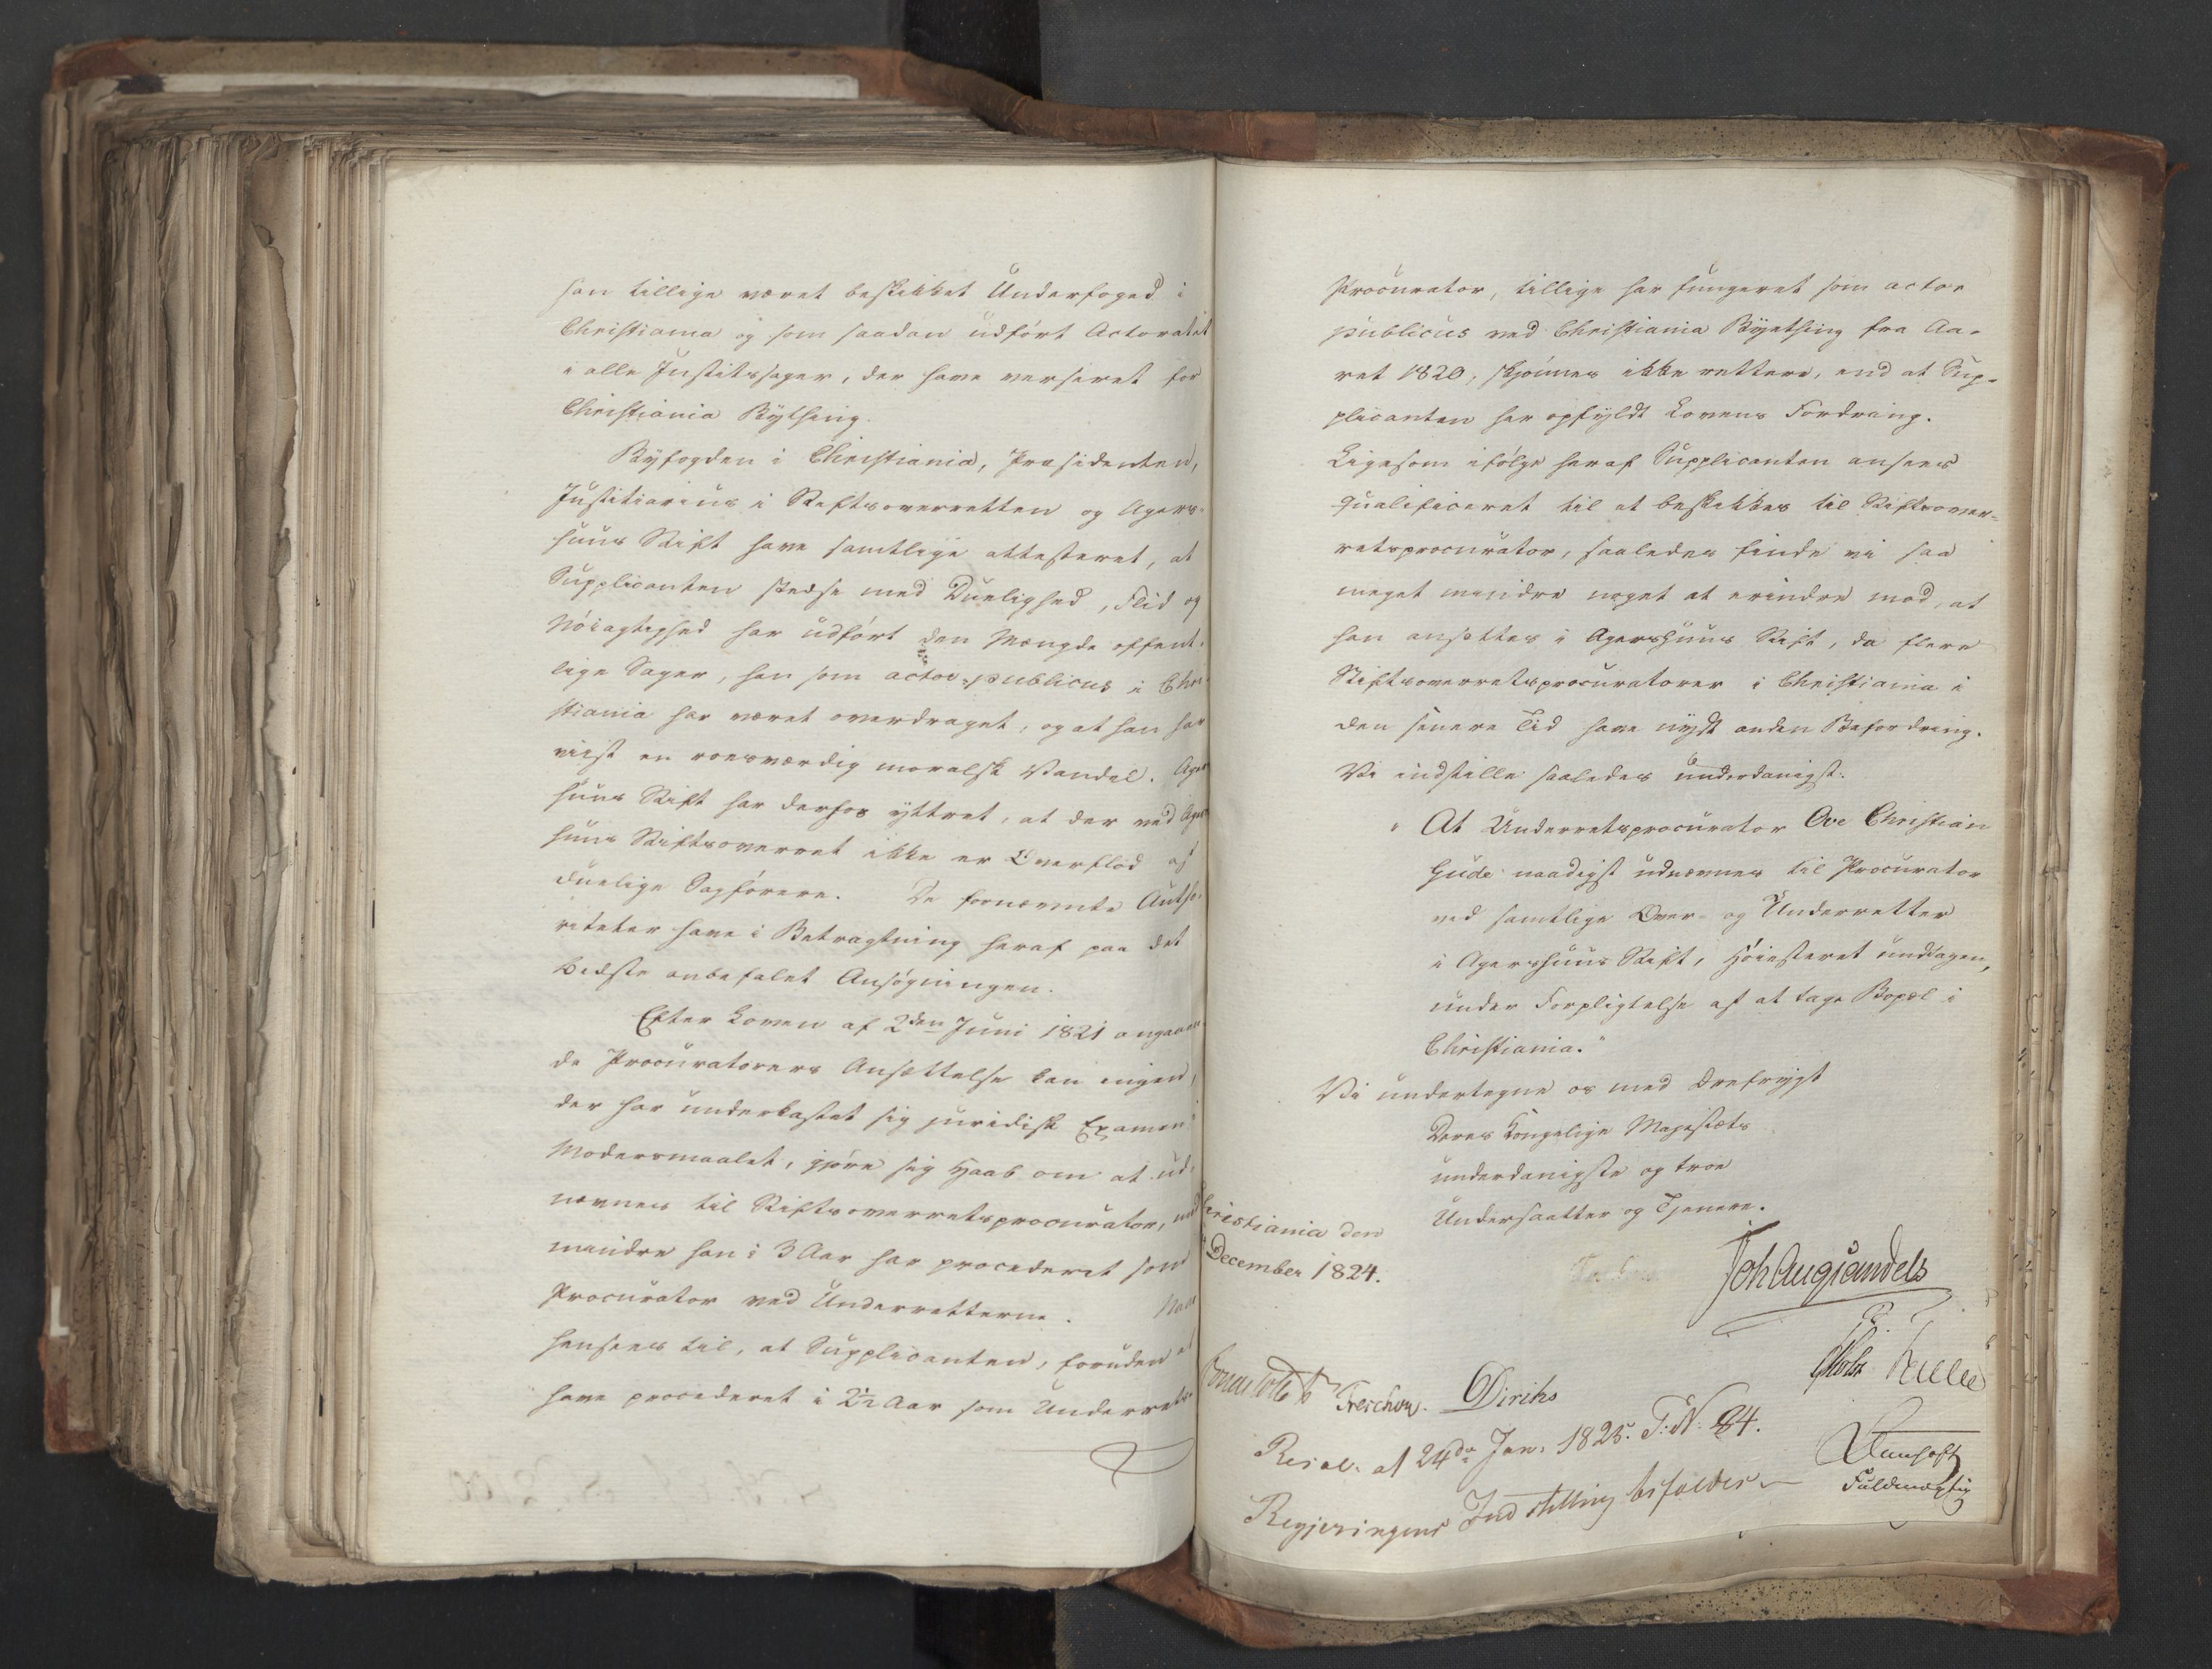 han tillige været beskikket Underfoged i
Christiania og som saadan udført Actoratet
i alle Justitssager, der have verseret for
Christiania Bything.
Byfogden i Christiania, Præsidenten,
Justitiarius i Stiftsoverretten og Agers-
huus Stift have samtlige attesteret, at
Supplicanten stedse med Duelighed, Flid og
Nöiagtighed har udført den Mængde offent-
lige Sager, han som actor publicus i Chri-
stiania har været overdraget, og at han har
viist en roesværdig moralsk Vandel. Agers
huus Stift har derhos yttret, at der ved Agers
huus Stiftsoverret ikke er Overflod af
duelige Sagförere. De fornævnte Autho-
riteter have i Betragtning heraf paa det
bedste anbefalet Ansögningen.
Efter Loven af 2den Juni 1821 angaaen-
de Procuratorers Ansættelse kan ingen,
der har underkastet sig juridisk Examen i
Modersmaalet, gjöre sig Haab om at ud-
nævnes til Stiftsoverretsprocurator, med
mindre han i 3 Aar har procederet som
Procurator ved Underretterne. Naar
hensees til, at Supplicanten, foruden at
have procederet i 2½ Aar som Underrets-
Procurator, tillige har fungeret som actor
publicus ved Christiania Byething fra Aa-
ret 1820, skjönnes ikke rettere, end at Sup-
plicanten har opfyldt Lovens Fordring.
Ligesom ifölge heraf Supplicanten ansees
qualificeret til at beskikkes til Stiftsover-
retsprocurator, saaledes finde vi saa
meget mindre noget at erindre mod, at
han ansættes i Agershuus Stift, da flere
Stiftsoverretsprocuratorer i Christiania i
den senere Tid have nydt anden Befordring.
Vi indstille saaledes underdanigst:
"At Underretsprocurator Ove Christian
Gude naadigst udnævnes til Procurator
ved samtlige Over- og Underretter
i Agershuus Stift, Höiesteret undtagen,
under Forpligtelse af at tage Bopæl i
Christiania."
Vi undertegne os med Ærefrygt
Deres Kongelige Majestæts
underdanigste og troe
Undersaatter og Tjenere.
Christiania den
December 1824.
Joh Aug Sandels
Treschow. Diriks
Resol. af 24de Jan. 1825. T: N: 84.
Regjeringens Indstilling bifaldes
Fuldmægtig